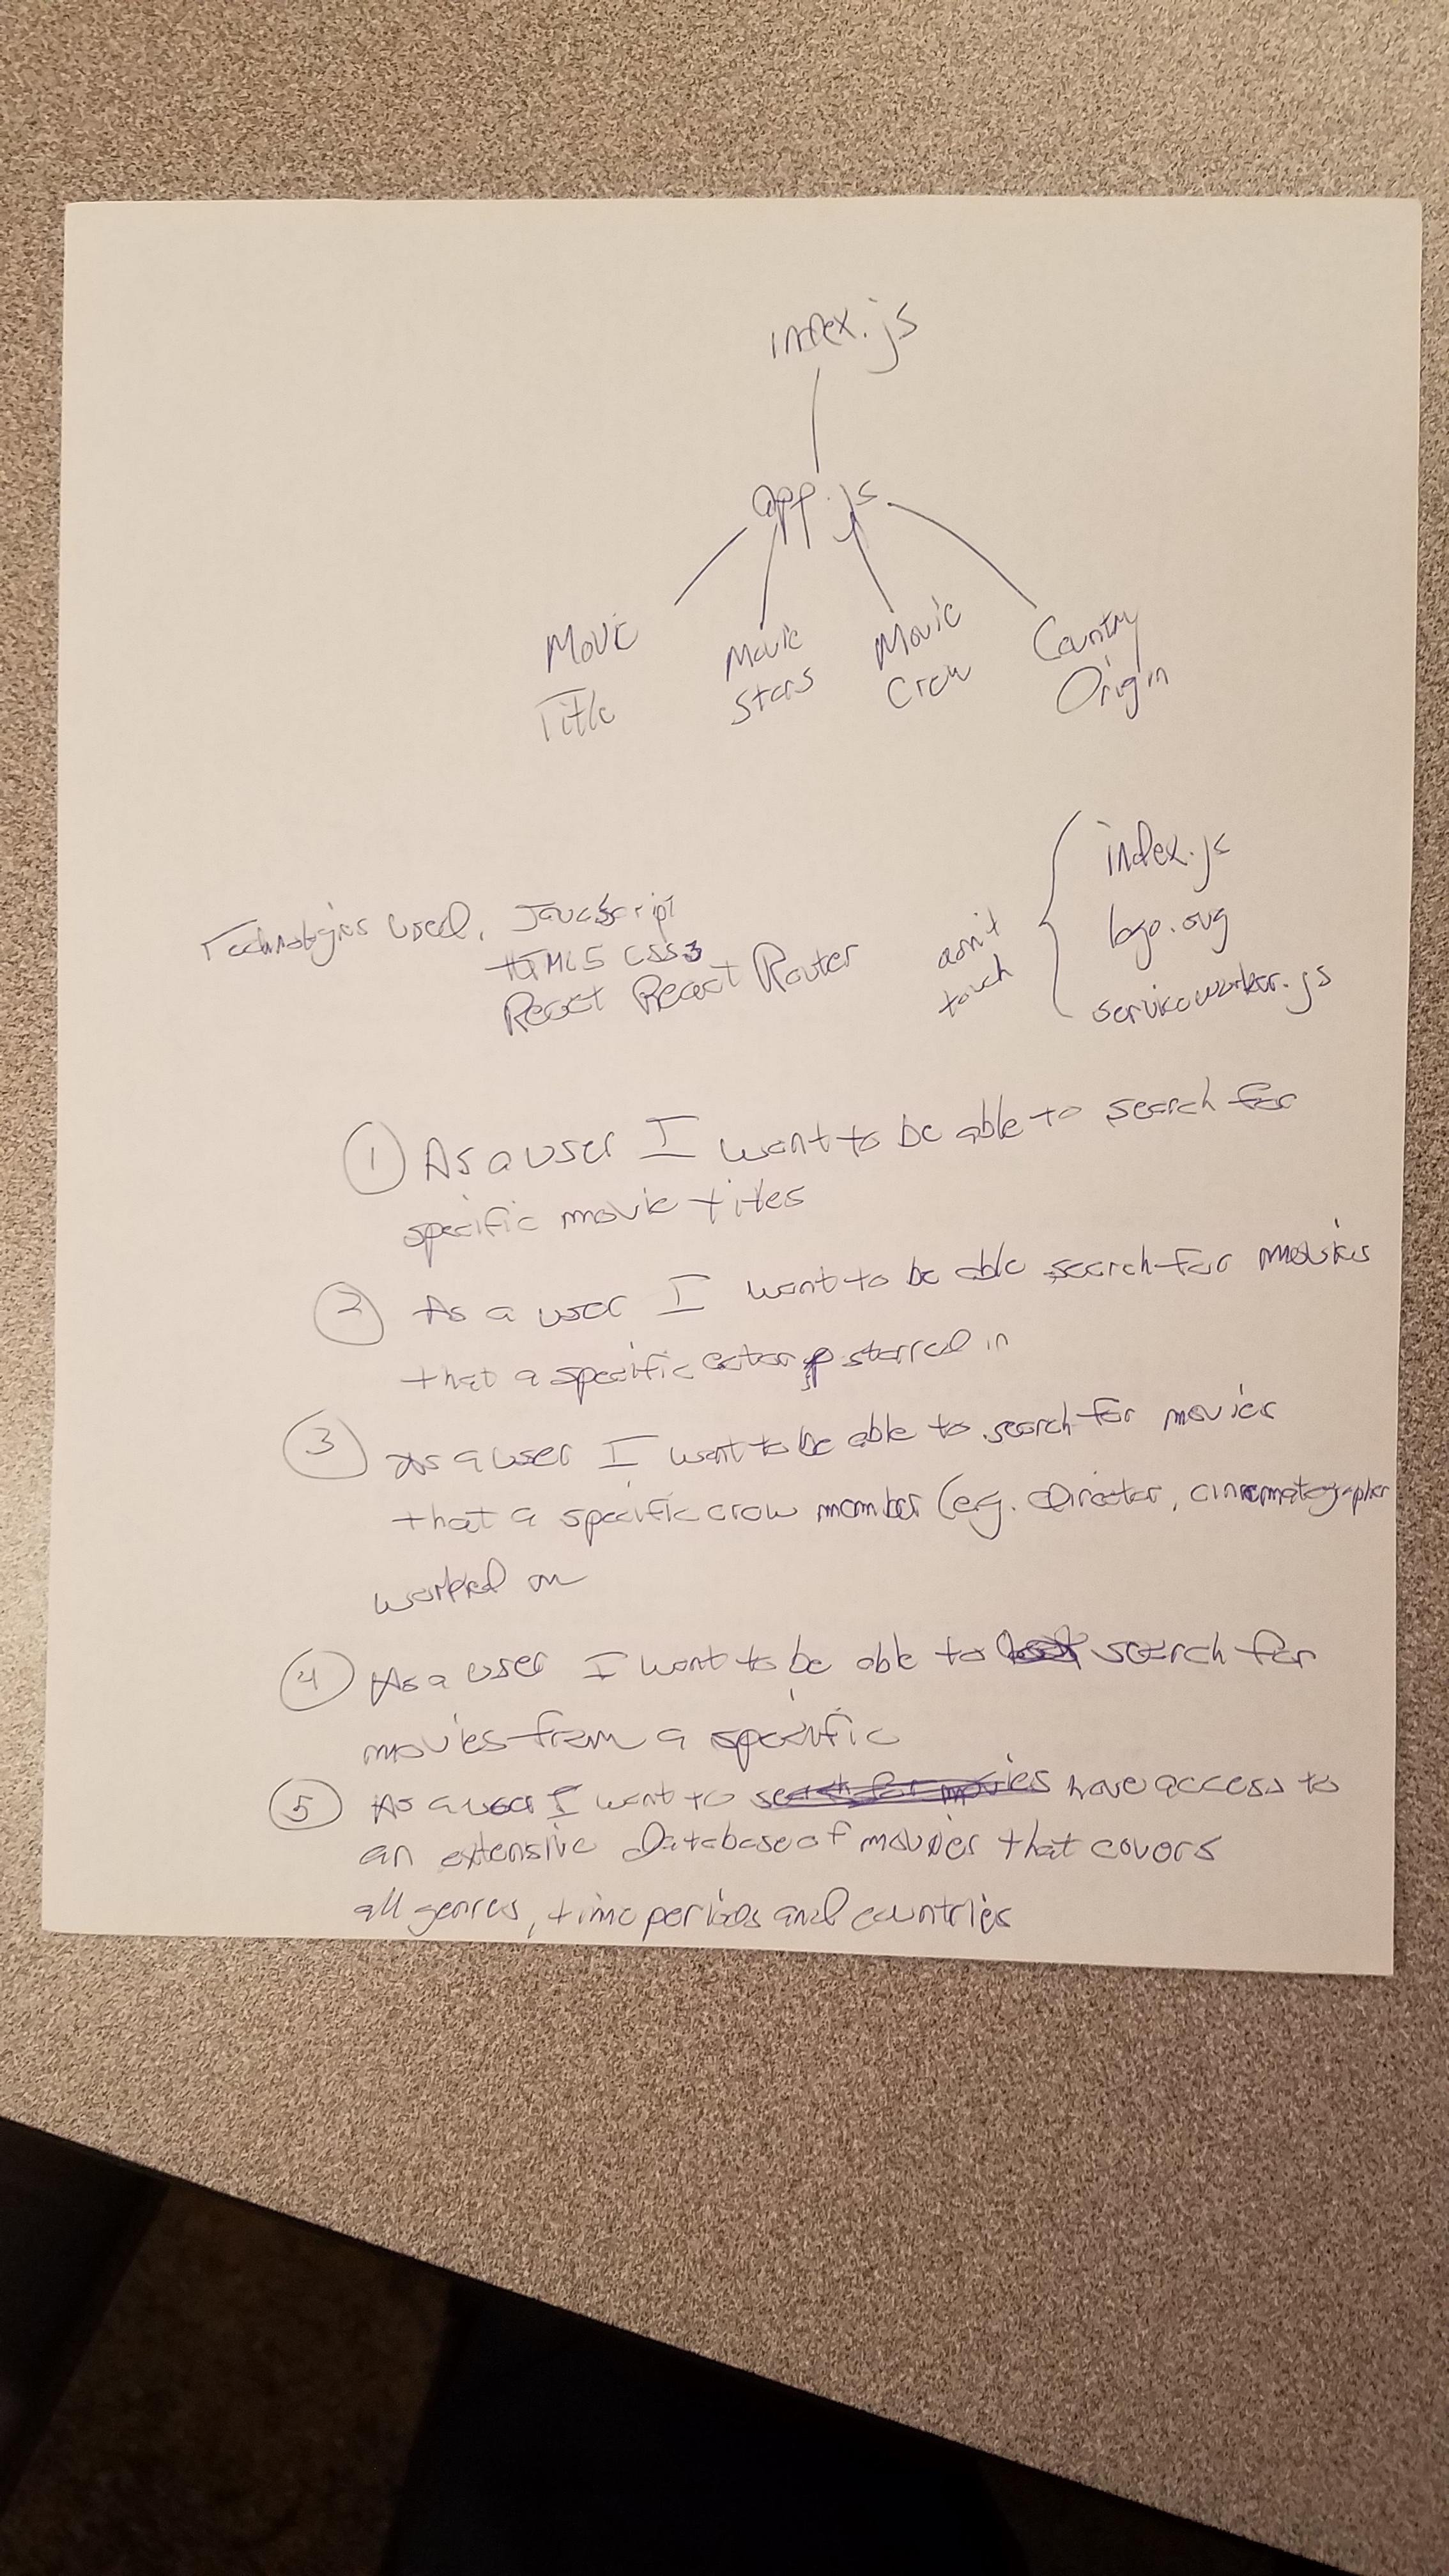 index.js
app.js
Movie Title
Movie Stars
Movie Crew
Country Origin
Technologies Used, JavaScript
HTML5 CSS3
React React Router
don't touch
index.js
logo.svg
serviceworker.js
① As a user I want to be able to search for
specific movie titles
② As a user I want to be able search for movies
that a specific actor starred in
③ As a user I want to be able to search for movies
that a specific crew member (e.g. Director, cinematographer
worked on
④ As a user I want to be able to search for
movies from a specific
⑤ As a user I want to search for movies have access to
an extensive Database of movies that covers
all genres, time periods and countries